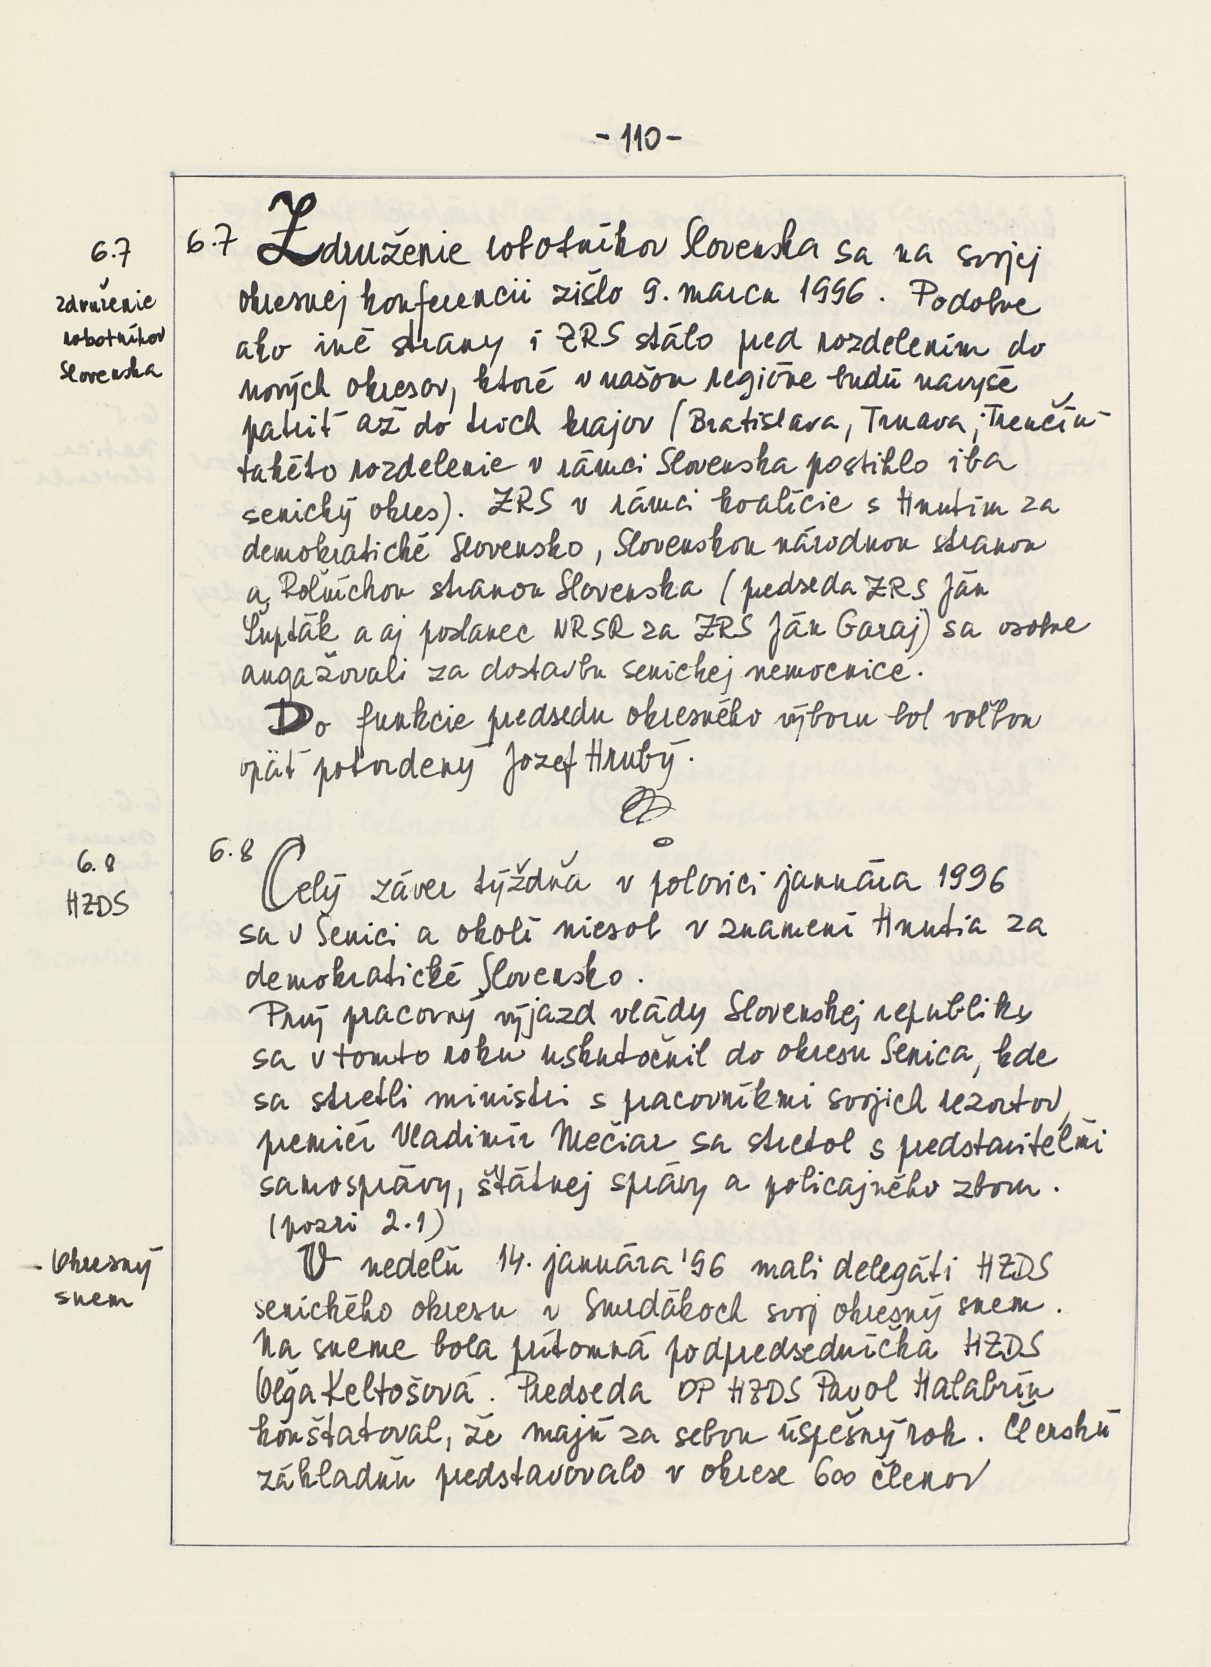 - 110 -
6.7
združenie
robotníkov
Slovenska
6.7 Združenie robotníkov Slovenska sa na svojej
okresnej konferencii zišlo 9. marca 1996. Podobne
ako iné strany i ZRS stálo pred rozdelením do
nových okresov, ktoré v našom regióne budú navyše
patriť až do troch krajov (Bratislava, Trnava, Trenčín -
takéto rozdelenie v rámci Slovenska postihlo iba
senický okres). ZRS v rámci koalície s Hnutím za
demokratické Slovensko, Slovenskou národnou stranou
a Roľníckou stranou Slovenska (predseda ZRS Ján
Ľupták a aj poslanec NRSR za ZRS Ján Garaj) sa osobne
angažovali za dostavbu senickej nemocnice.
Do funkcie predsedu okresného výboru bol voľbou
opäť potvrdený Jozef Hrubý.
6.8
HZDS
6.8 Celý záver týždňa v polovici januára 1996
sa v Senici a okolí niesol v znamení Hnutia za
demokratické Slovensko.
Prvý pracovný výjazd vlády Slovenskej republiky
sa v tomto roku uskutočnil do okresu Senica, kde
sa stretli ministri s pracovníkmi svojich rezortov,
premiér Vladimír Mečiar sa stretol s predstaviteľmi
samosprávy, štátnej správy a policajného zboru.
(pozri 2.1)
- Okresný
snem
V nedeľu 14. januára '96 mali delegáti HZDS
senického okresu v Smrdákoch svoj okresný snem.
Na sneme bola prítomná podpredsedníčka HZDS
Oľga Keltošová. Predseda OP HZDS Pavol Halabrín
konštatoval, že majú za sebou úspešný rok. Členskú
základňu predstavovalo v okrese 600 členov